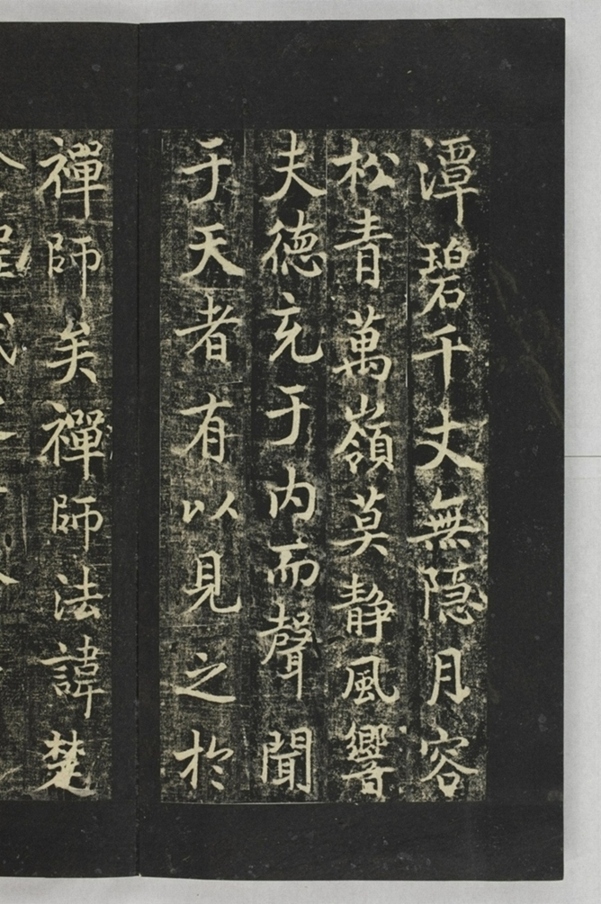 潭碧千丈無隐月容
松青萬嶺莫静風響
夫徳充于内而聲聞
于天者有以見之於
禪師矣禪師法諱楚